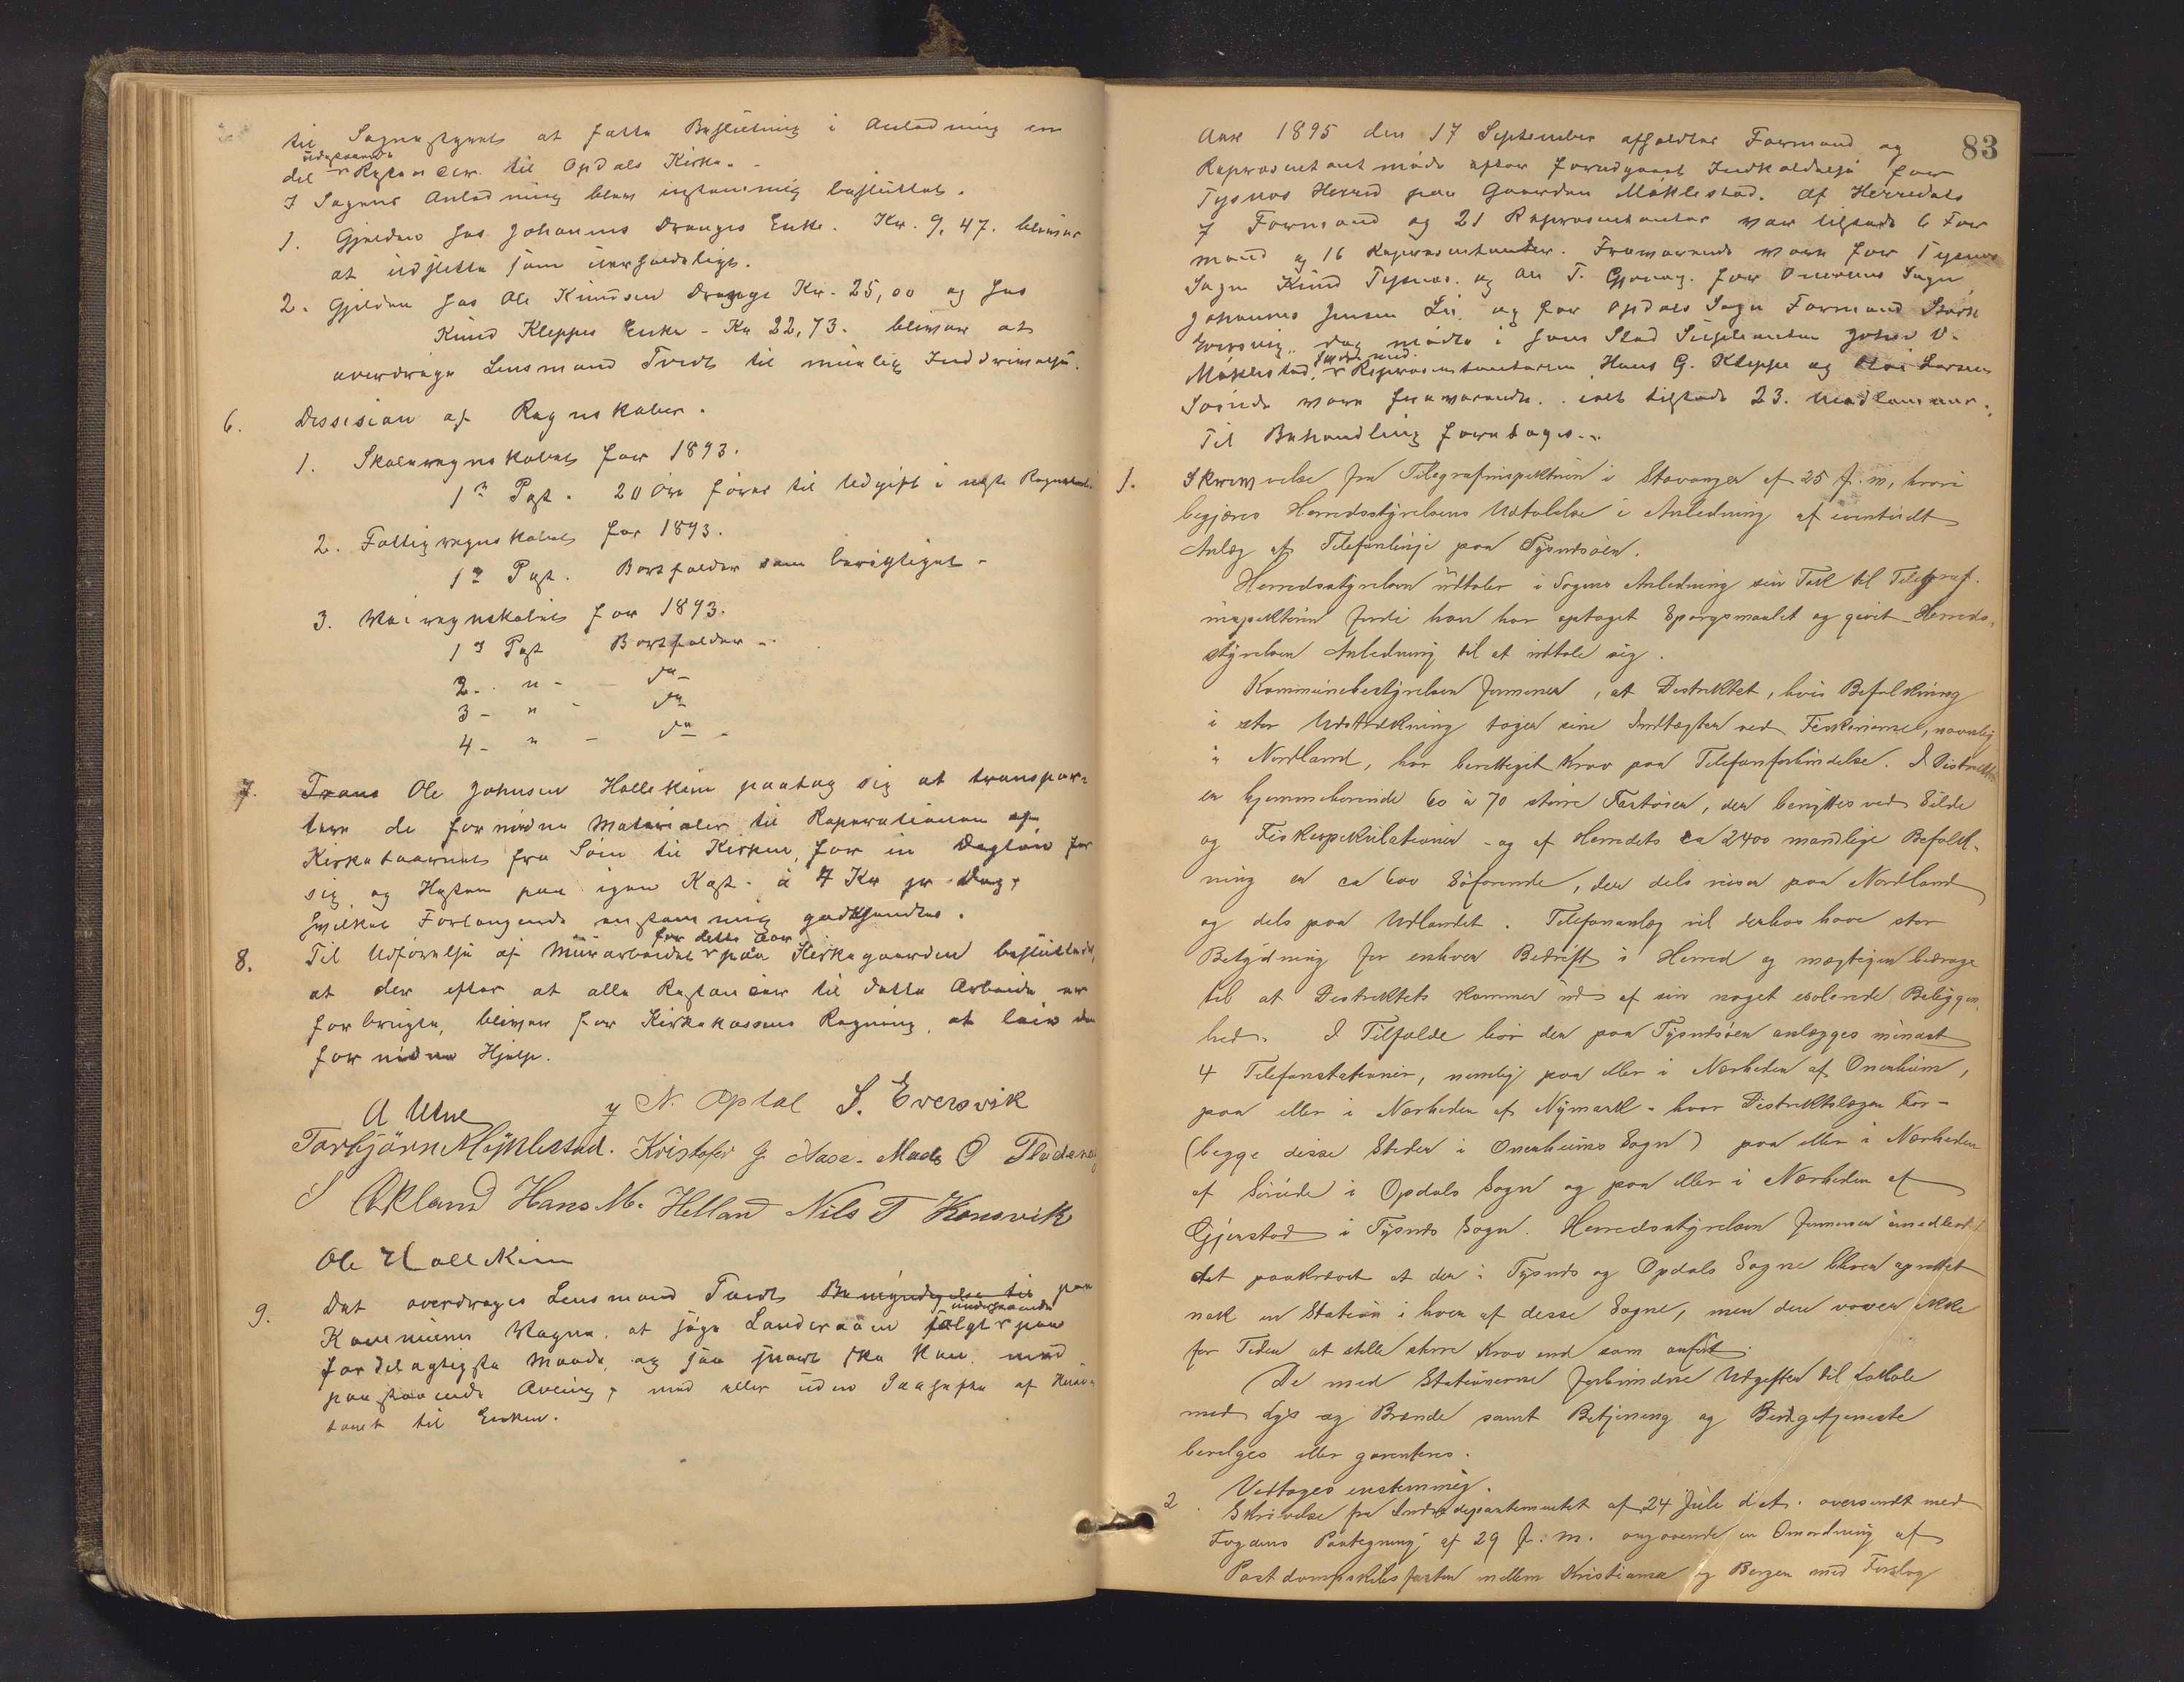 til Sognestyret at fatte Beslutning i Anledning en
udestaaende
del Restancer til Opdals Kirke.
I Sagens Anledning blev enstemmig besluttet.
1. Gjælden hos Johannes Dranges Enke. Kr. 9,47. bliver
at udslette som uerholdelige.
2. Gjælden hos Ole Knudsen Drange Kr. 25,00 og hos
Knud Kleppes Enke - Kr 22,73. bliver at
overdrage Lensmand Tvedt til mulig Inddrivelse.
6. Dessision af Regnskaber.
1. Skoleregnskabet for 1893.
1ste Post. 20 Øre føres til Udgift i neste Regnskab.
2. Fattigregnskabet for 1893.
1ste Post. Bortfalder som berigtiget -
3. Veiregnskabet for 1893.
1ste Post Bortfalder -
2 - " - do -
3 - " - do
4 - " - do -
7. Ole Johnsen Hallekim paatog sig at transpor-
tere de fornødne Materialer til Reparationen af
Kirketaarnet fra Søen til Kirken, for en Dagløn for
sig og Hesten paa egen Kost. à 4 Kr pr Dag,
hvilket Forlangende enstemmig godkjendtes.
8. Til Udførelse af Murarbeidet
for dette Aar
paa Kirkegaarden besluttedes,
at der efter at alle Restancer til dette Arbeide er
forbrugte, bliver for Kirkekassens Regning, at leie den
fornødne Hjelp.
A Utne N. Opdal S. Eversvik
Torbjörn Møklestad. Kristofer J. Aase. Mads O Flaaden
S Økland Hans M. Helland Nils T Konsvik
Ole Hallekim
9. Det overdrages Lensmand Tvedt Bemyndigelse til paa
Kommunens Vegne, at søge Landeraaen
underhaanden
solgt paa
fordelagtigste Maade, og saa snart ske kan. med
paastaaende Avling, med eller uden Paahefte af
til Enken.
83
Aar 1895 den 17 September afholdtes Formand og
Repræsentantmøde efter forudgaaet Indkaldelse for
Tysnes Herred paa Gaarden Møklestad. Af Herredets
7 Formænd og 21 Repræsentanter var tilstede 6 For
mænd og 16 Repræsentanter. Fraværende vare for Tysnes
Sogn Knud Tysnes. og Ole T. Gjerag. for Onerems Sogn,
Johannes Jensen Li. og for Opdals Sogn Formand
Eversvig, dog mødte i hans Sted Suppleanten Johs O.
Møklestad,
samt med
Repræsentanterne Hans G. Kleppe og Lars
Soride vare fraværende. . ialt tilstede 23. Medlemmer.
Til Behandling foretoges. -
1. Skrivelse fra Telegrafinspektøren i Stavanger af 25 f. m., hvori
begjæres Herredsstyrelsens Udtalelse i Anledning af eventuelt
Anlæg af Telefonlinje paa Tysnesøen.
Herredsstyrelsen udtaler i Sagens Anledning sin Tak til Telegraf-
inspektøren fordi han har optaget Spørgsmaalet og givet Herreds-
styrelsen Anledning til at udtale sig.
Kommunebestyrelsen formener, at Distriktet, hvis Befolkning
i stor Udstrækning tager sine Indtægter ved Fiskerierne, navnlig
i Nordland, har berettiget Krav paa Telefonforbindelse. I Distriktet
er hjemmehørende 60 à 70 større Fartøier, der benyttes ved Silde
og Fiskespekulationer - og af Herredets ca 2400 mandlige Befolk-
ning er ca 600 Søfarende, der dels reiser paa Nordland
og dels paa Udlandet. Telefonanlæg vil derhos have stor
Betydning for enhver Bedrift i Herred og mægtigen bidrage
til at Distriktets kommer ud af sin noget isolerede Beliggen-
hed. I Tilfælde bør der paa Tysnesøen anlægges mindst
4 Telefonstationer, nemlig paa eller i Nærheden af Onerheim,
paa eller i Nærheden af Nymark - hvor Distriktslægen bor -
(begge disse Steder i Onerheims Sogn) paa eller i Nærheden
af Soreide i Opdals Sogn og paa eller i Nærheden af
Gjerstad i Tysnes Sogn. Herredsstyrelsen formener imidlertid
det paakrævet at der i Tysnes og Opdals Sogne bliver oprettet
nok en Station i hver af disse Sogne, men den vover ikke
for Tiden at stille større Krav end som anført.
De med Stationerne forbundne Udgifter til Lokale
med Lys og Brænde samt Betjening og Budgetjeneste
bevilges eller garanteres.
Vedtages enstemmig.
2. Skrivelse fra Indredepartementet af 24 Juli d.A. oversendt med
Fogdens Paategning af 29 f. m. angaaende en Omordning af
Postdampskibsfarten mellem Kristiania og Bergen med Forslag